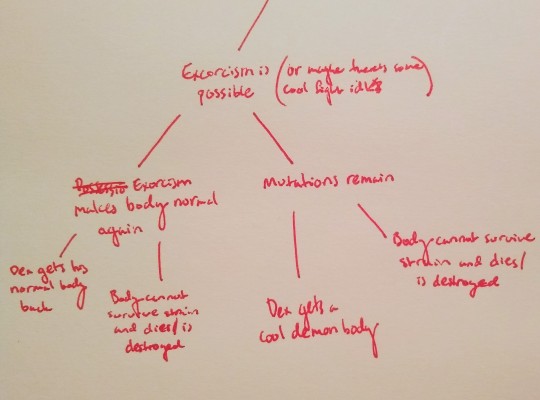 Excorcism is
possible
(or maybe theres some
cool fight idk)
Exorcism
makes body normal
again
Mutations remain
Dex gets his
normal body
back
Body cannot
survive strain
and dies/is
destroyed
Dex gets a
cool demon body
Body cannot survive
strain and dies/
is destroyed